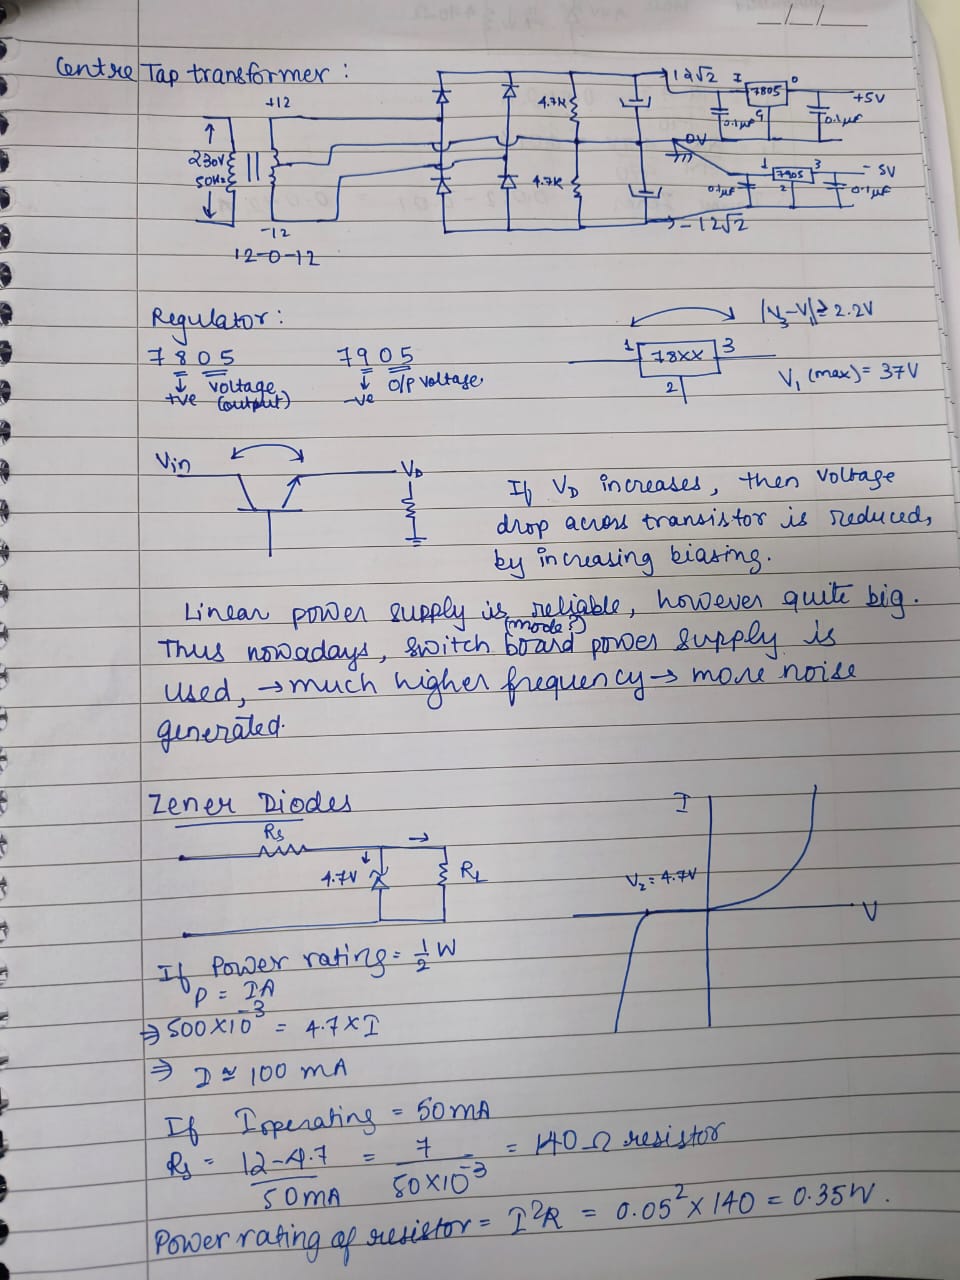 __/__/____
Centre Tap transformer :
+12
230V
50Hz
-12
12-0-12
4.7K
4.7K
12√2
I
7805
O
G
+5V
0.1μF
0.1μF
0V
1
7905
3
2
-5V
0.1μF
0.1μF
-12√2
Regulator :
7805
+ve
voltage
(output)
7905
-ve
O/P voltage
1
78XX
3
2
|V3-V1| ≥ 2.2V
V1 (max) = 37V
Vin
VD
If VD increases, then voltage
drop across transistor is reduced,
by increasing biasing.
Linear power supply is reliable, however quite big.
(mode?)
Thus nowadays, switch board power supply is
used, → much higher frequency → more noise
generated.
Zener Diodes
Rs
4.7V
RL
I
Vz = 4.7V
V
If Power rating = 1/2 W
P = IA
⇒ 500×10^-3 = 4.7×I
⇒ I ≈ 100 mA
If Ioperating = 50mA
Rs = 12-4.7/50mA = 7/50×10^-3 = 140 Ω resistor
Power rating of resistor = I²R = 0.05² × 140 = 0.35W.